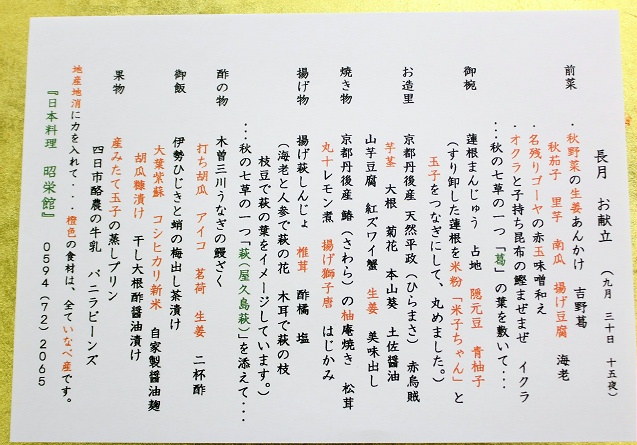 長月　お献立　（九月　三十日　十五夜）
前菜　・秋野菜の生姜あんかけ　吉野葛
秋茄子　里芋　南瓜　揚げ豆腐　海老
・名残りゴーヤの赤玉味噌和え
・オクラと子持ち昆布の鰹まぜまぜ　イクラ
・・・秋の七草の一つ「葛」の葉を敷いて・・・
御椀　蓮根まんじゅう　占地　隠元豆　青柚子
(すり卸した蓮根を米粉「米子ちゃん」と
玉子をつなぎにして、丸めました。)
お造里　京都丹後産　天然平政(ひらまさ)　赤烏賊
芋茎　大根　菊花　本山葵　土佐醤油
山芋豆腐　紅ズワイ蟹　生姜　美味出し
焼き物　京都丹後産　鰆(さわら)の柚庵焼き　松茸
丸十レモン煮　揚げ獅子唐　はじかみ
揚げ物　揚げ萩しんじょ　椎茸　酢橘　塩
(海老と人参で萩の花　木耳で萩の枝
枝豆で萩の葉をイメージしています。)
・・・秋の七草の一つ「萩(屋久島萩)」を添えて・・・
酢の物　木曽三川うなぎの鰻ざく
打ち胡瓜　アイコ　茗荷　生姜　二杯酢
御飯　伊勢ひじきと蛸の梅出し茶漬け
大葉紫蘇　コシヒカリ新米　自家製醤油麹
胡瓜糠漬け　干し大根酢醤油漬け
果物　産みたて玉子の蒸しプリン
四日市酪農の牛乳　バニラビーンズ
地産地消に力を入れて・・・橙色の食材は、全ていなべ産です。
『日本料理　昭栄館』　0594(72)2065